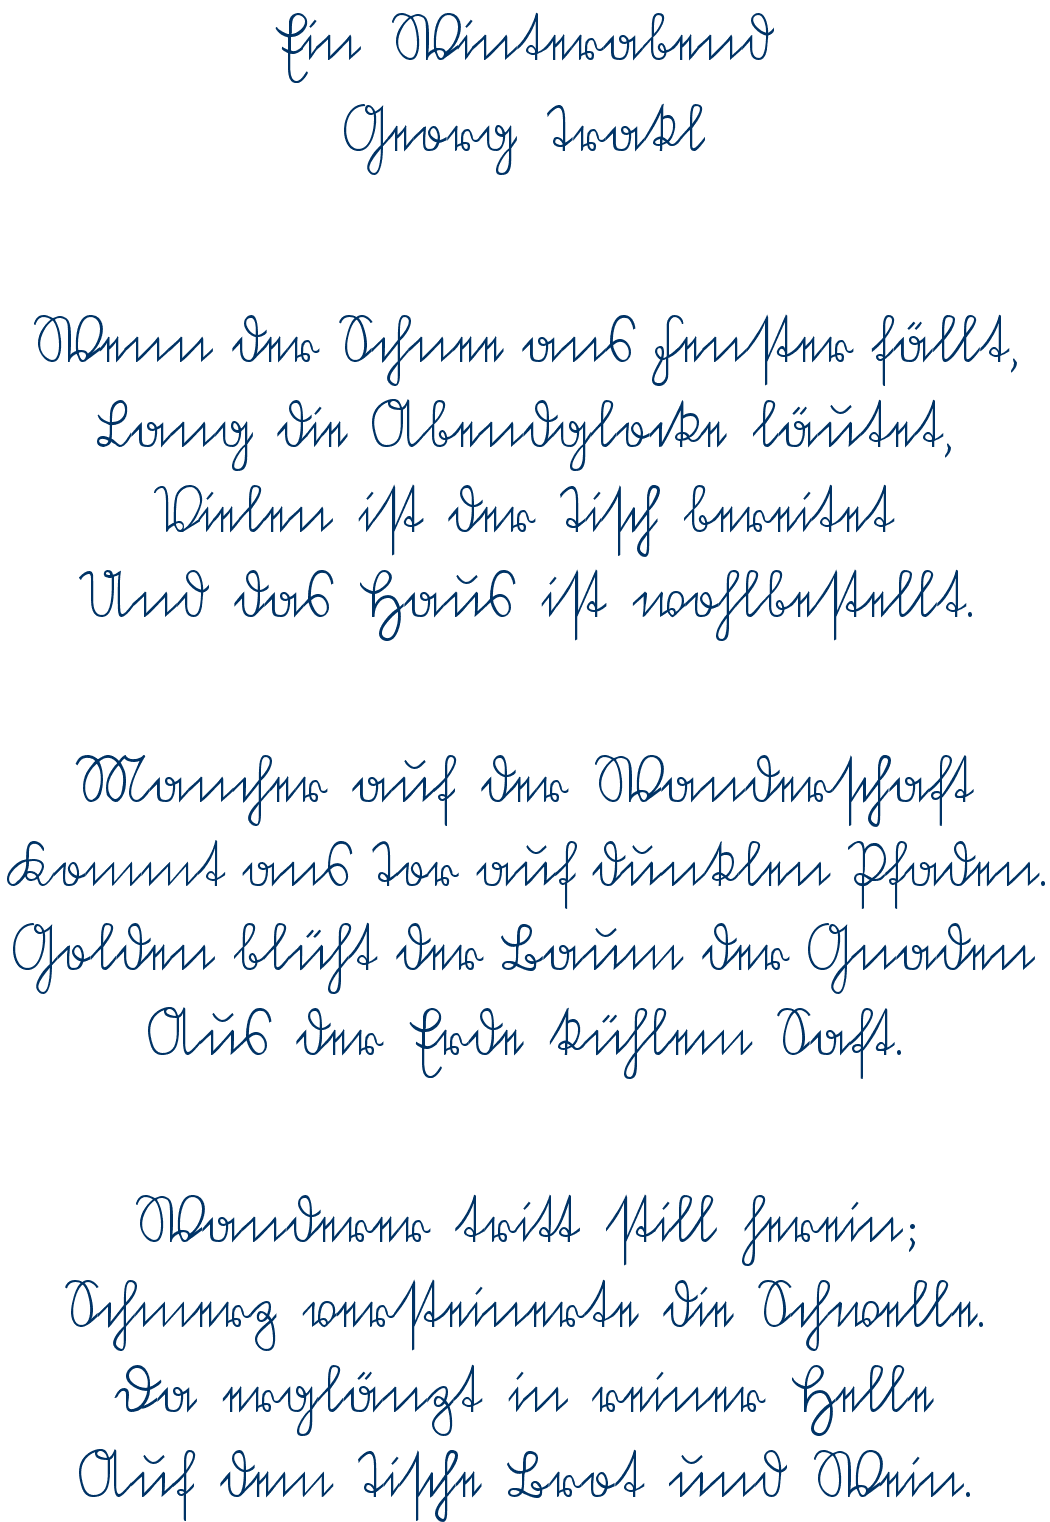 Ein Winterabend
Georg Trakl
Wenn der Schnee ans Fenster fällt,
Lang die Abendglocke läutet,
Vielen ist der Tisch bereitet
Und das Haus ist wohlbestellt.
Mancher auf der Wanderschaft
Kommt ans Tor auf dunklen Pfaden.
Golden blüht der Baum der Gnaden
Aus der Erde kühlem Saft.
Wanderer tritt still herein;
Schmerz versteinerte die Schwelle.
Da erglänzt in reiner Helle
Auf dem Tische Brot und Wein.